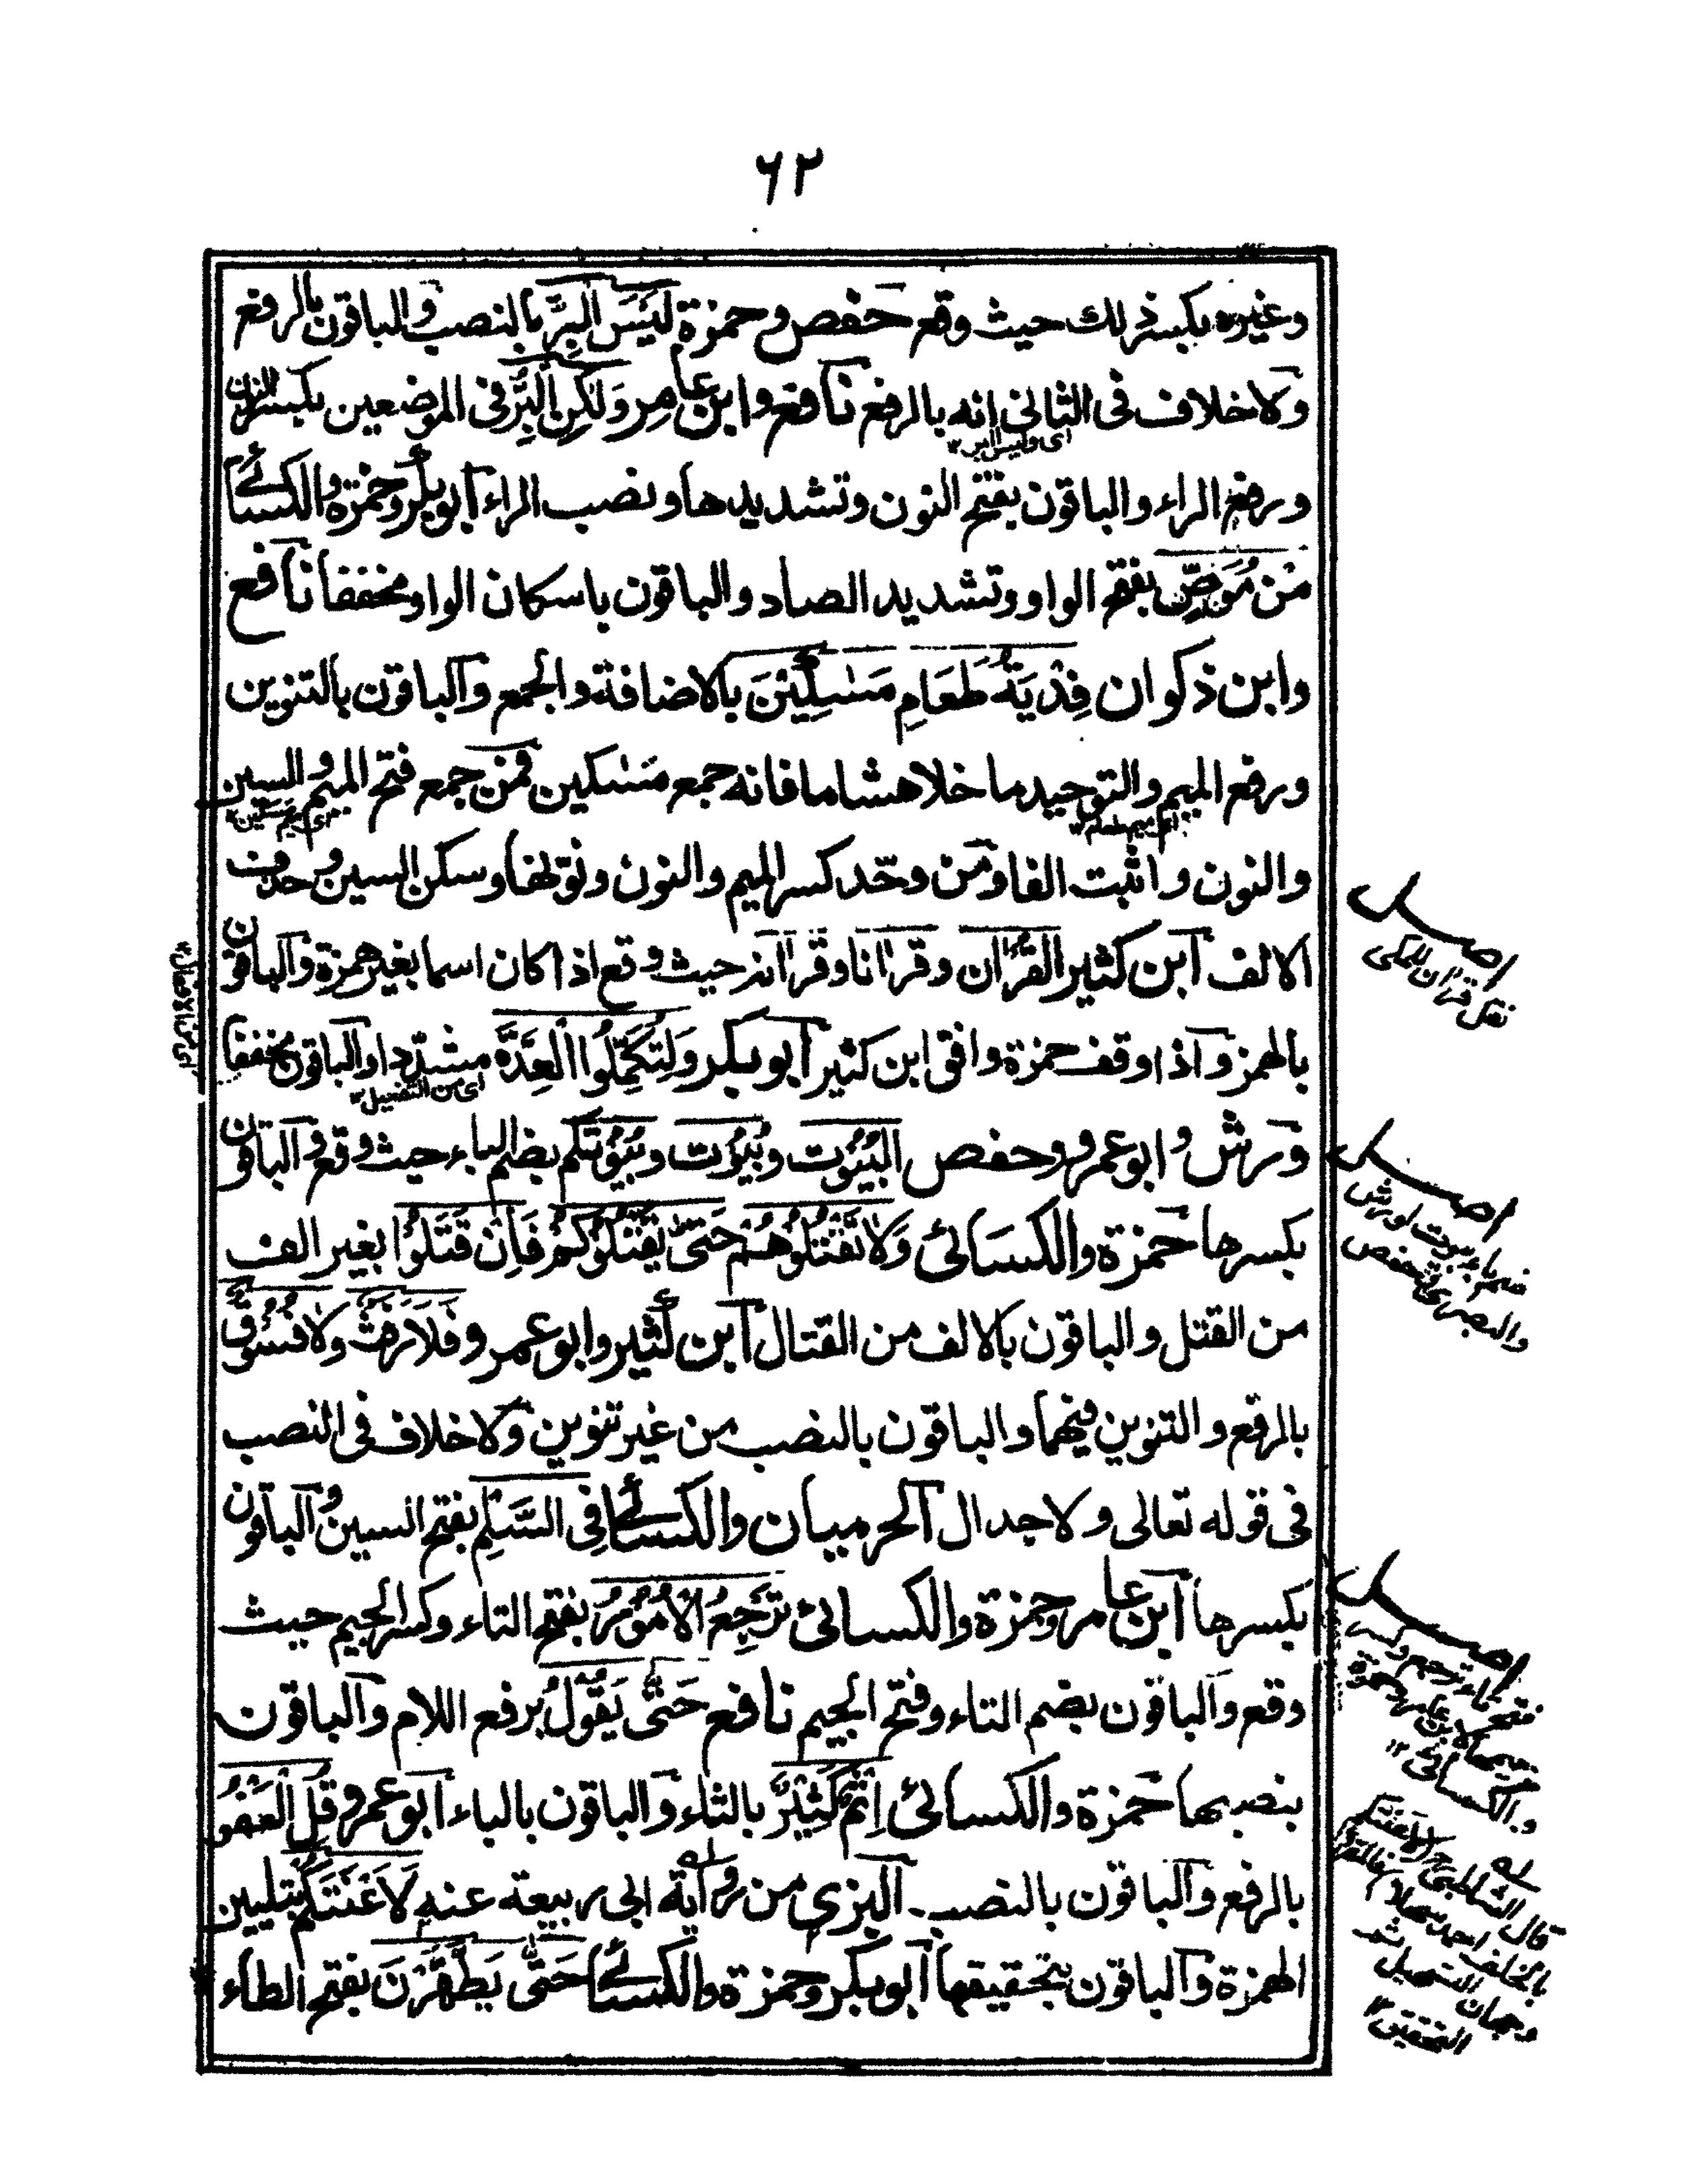 ٦٢
وغيره بكسر ذلك حيث وقع حفص وحمزة لَيْسَ الْبِرَّ بالنصب والباقون بالرفع
ولا خلاف فى الثانى انه بالرفع نافع وابن عامر وَلٰكِنِ الْبِرُّ فى الموضعين بكسر النون
اى وليس البر ١٢
ورفع الراء والباقون بفتح النون وتشديدها ونصب الراء ابو بكر وحمزة والكسائى
مِنْ مُوَصٍّ بفتح الواو وتشديد الصاد والباقون باسكان الواو مخففا نافع
وابن ذكوان فِدْيَةُ طَعَامِ مَسٰكِيْنَ بالاضافة والجمع والباقون بالتنوين
ورفع الميم والتوحيد ما خلا هشاما فانه جمع مسٰكين فمن جمع فتح الميم والسين
اى ميم طعام ١٢
والنون واثبت الفا ومن وحّد كسر الميم والنون ونوّنها وسكن السين وحذف
الالف ابن كثير القُرٰان وقرانا وقرانه حيث وقع اذا كان اسما بغير همزة والباقون
بالهمز واذا وقف حمزة وافق ابن كثير ابو بكر وَلِتُكَمِّلُوا الْعِدَّةَ مشدّدا والباقون مخففا
اى من التفعيل ١٢
ورش وابو عمرو وحفص الْبُيُوت وبُيُوت وبُيُوتكم بضم الباء حيث وقع والباقون
بكسرها حمزة والكسائى وَلَا تَقْتُلُوْهُمْ حَتّٰى يَقْتُلُوْكُمْ فَاِنْ قَتَلُوْا بغير الف
من القتل والباقون بالالف من القتال ابن كثير وابو عمرو فَلَا رَفَثٌ وَلَا فُسُوْقٌ
بالرفع والتنوين فيهما والباقون بالنصب من غير تنوين ولا خلاف فى النصب
فى قوله تعالى ولا جدال الحرميان والكسائى فِى السَّلْمِ بفتح السين والباقون
بكسرها ابن عامر وحمزة والكسائى تَرْجِعُ الْاُمُوْرُ بفتح التاء وكسر الجيم حيث
وقع والباقون بضم التاء وفتح الجيم نافع حَتّٰى يَقُوْلُ برفع اللام والباقون
بنصبها حمزة والكسائى اِثْمٌ كَثِيْرٌ بالثاء والباقون بالباء ابو عمرو قُلِ الْعَفْوُ
بالرفع والباقون بالنصب البزى من رواية ابى ربيعة عنه لَاَعْنَتَكُمْ بتليين
الهمزة والباقون بتحقيقها ابو بكر وحمزة والكسائى حَتّٰى يَطَّهَّرْنَ بفتح الطاء
اصل
نقل قران للمكى
اصل
ضم باء بيوت لورش
والبصرى وحفص
اصل
والكسائى ١٢
التحقيق ١٢